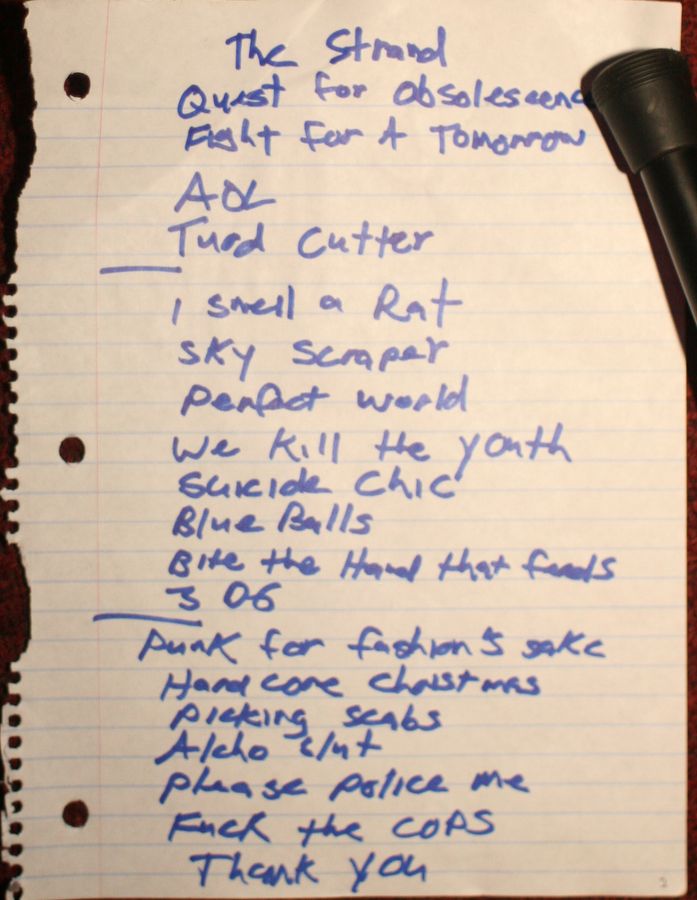 The Strand
Quest for Obsolescenc
Fight for A Tomorrow
AOL
Turd Cutter
I smell a Rat
Sky Scraper
Perfect World
We Kill the youth
Suicide Chic
Blue Balls
Bite the Hand that feeds
3 06
Punk for fashion's sake
Hardcore Christmas
Picking scabs
Alcho slut
Please police me
Fuck the COPS
Thank you